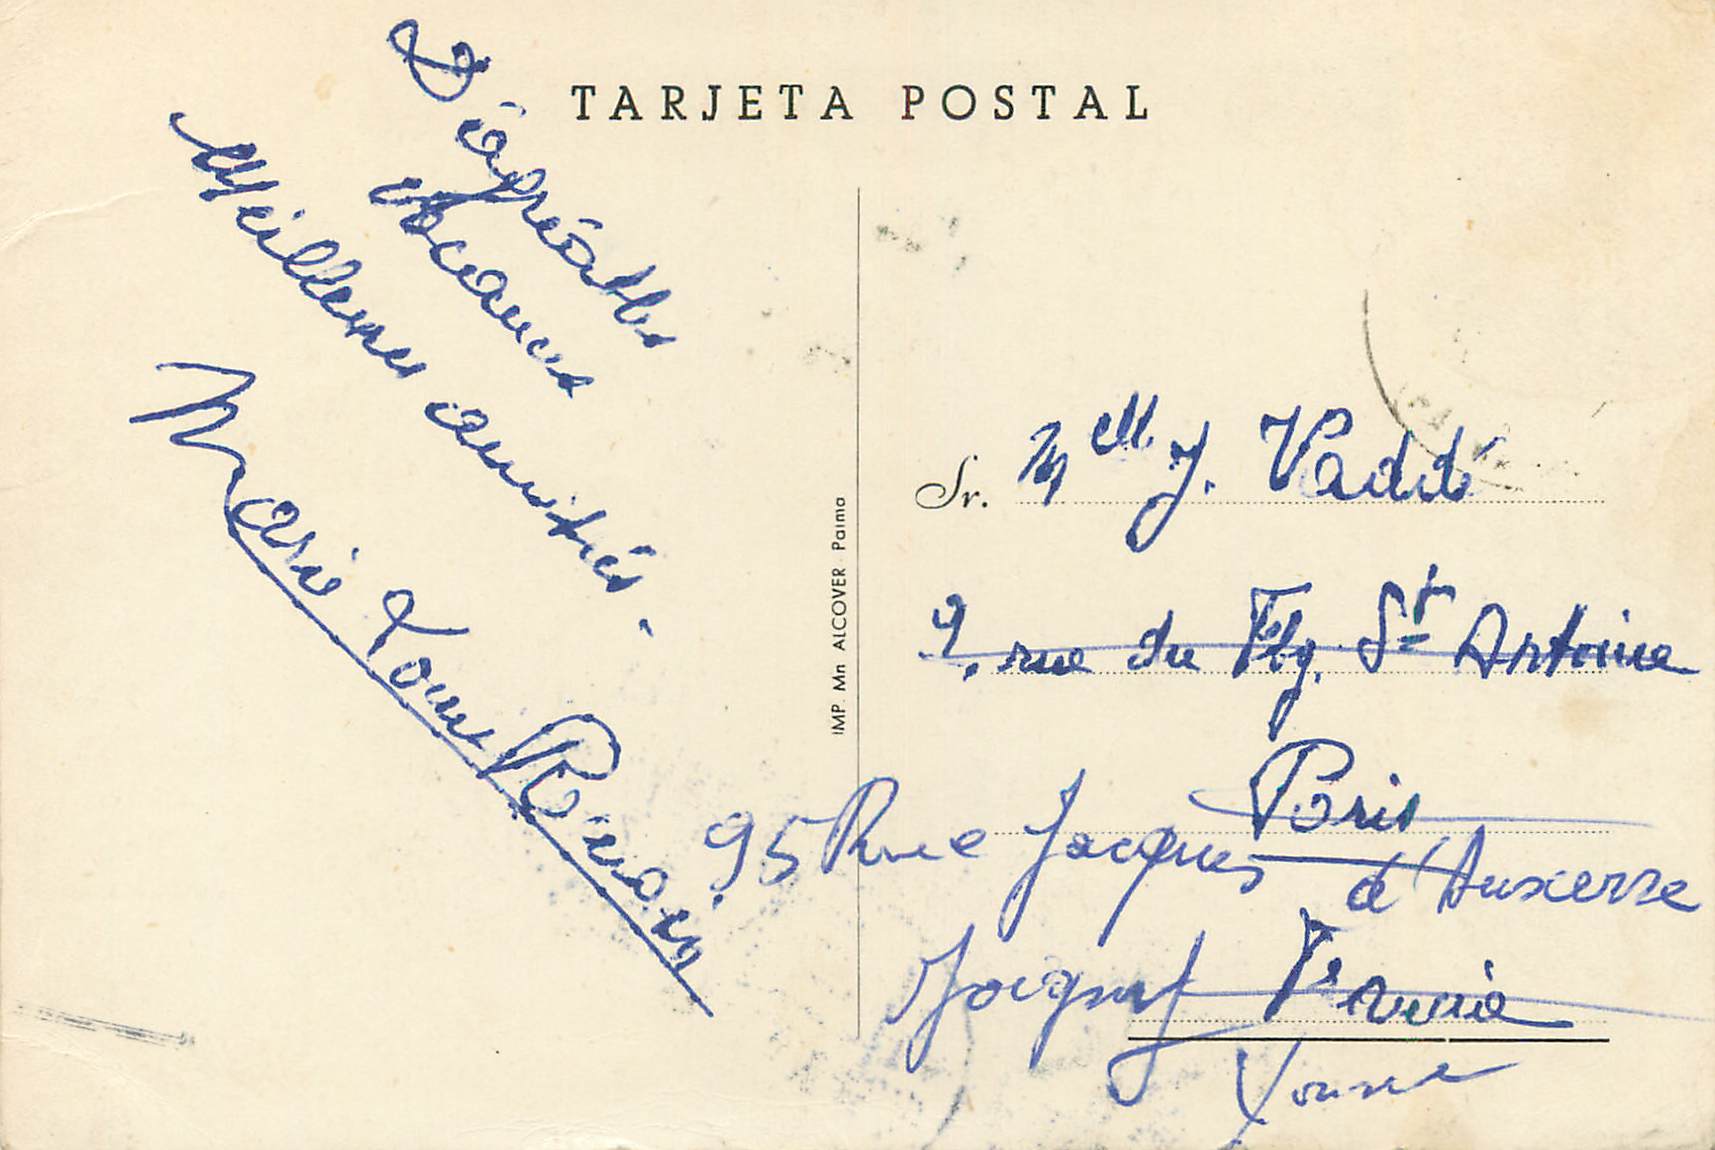 TARJETA POSTAL
D'agréables
vacances
Meilleures amitiés.
Marie Louise
IMP. Mn ALCOVER · Palma
Sr. Mlle J. Vaddé
9, rue du Fbg. St Antoine
Paris
95 Rue Jacques
d'Auxerre
Joigny France
Yonne